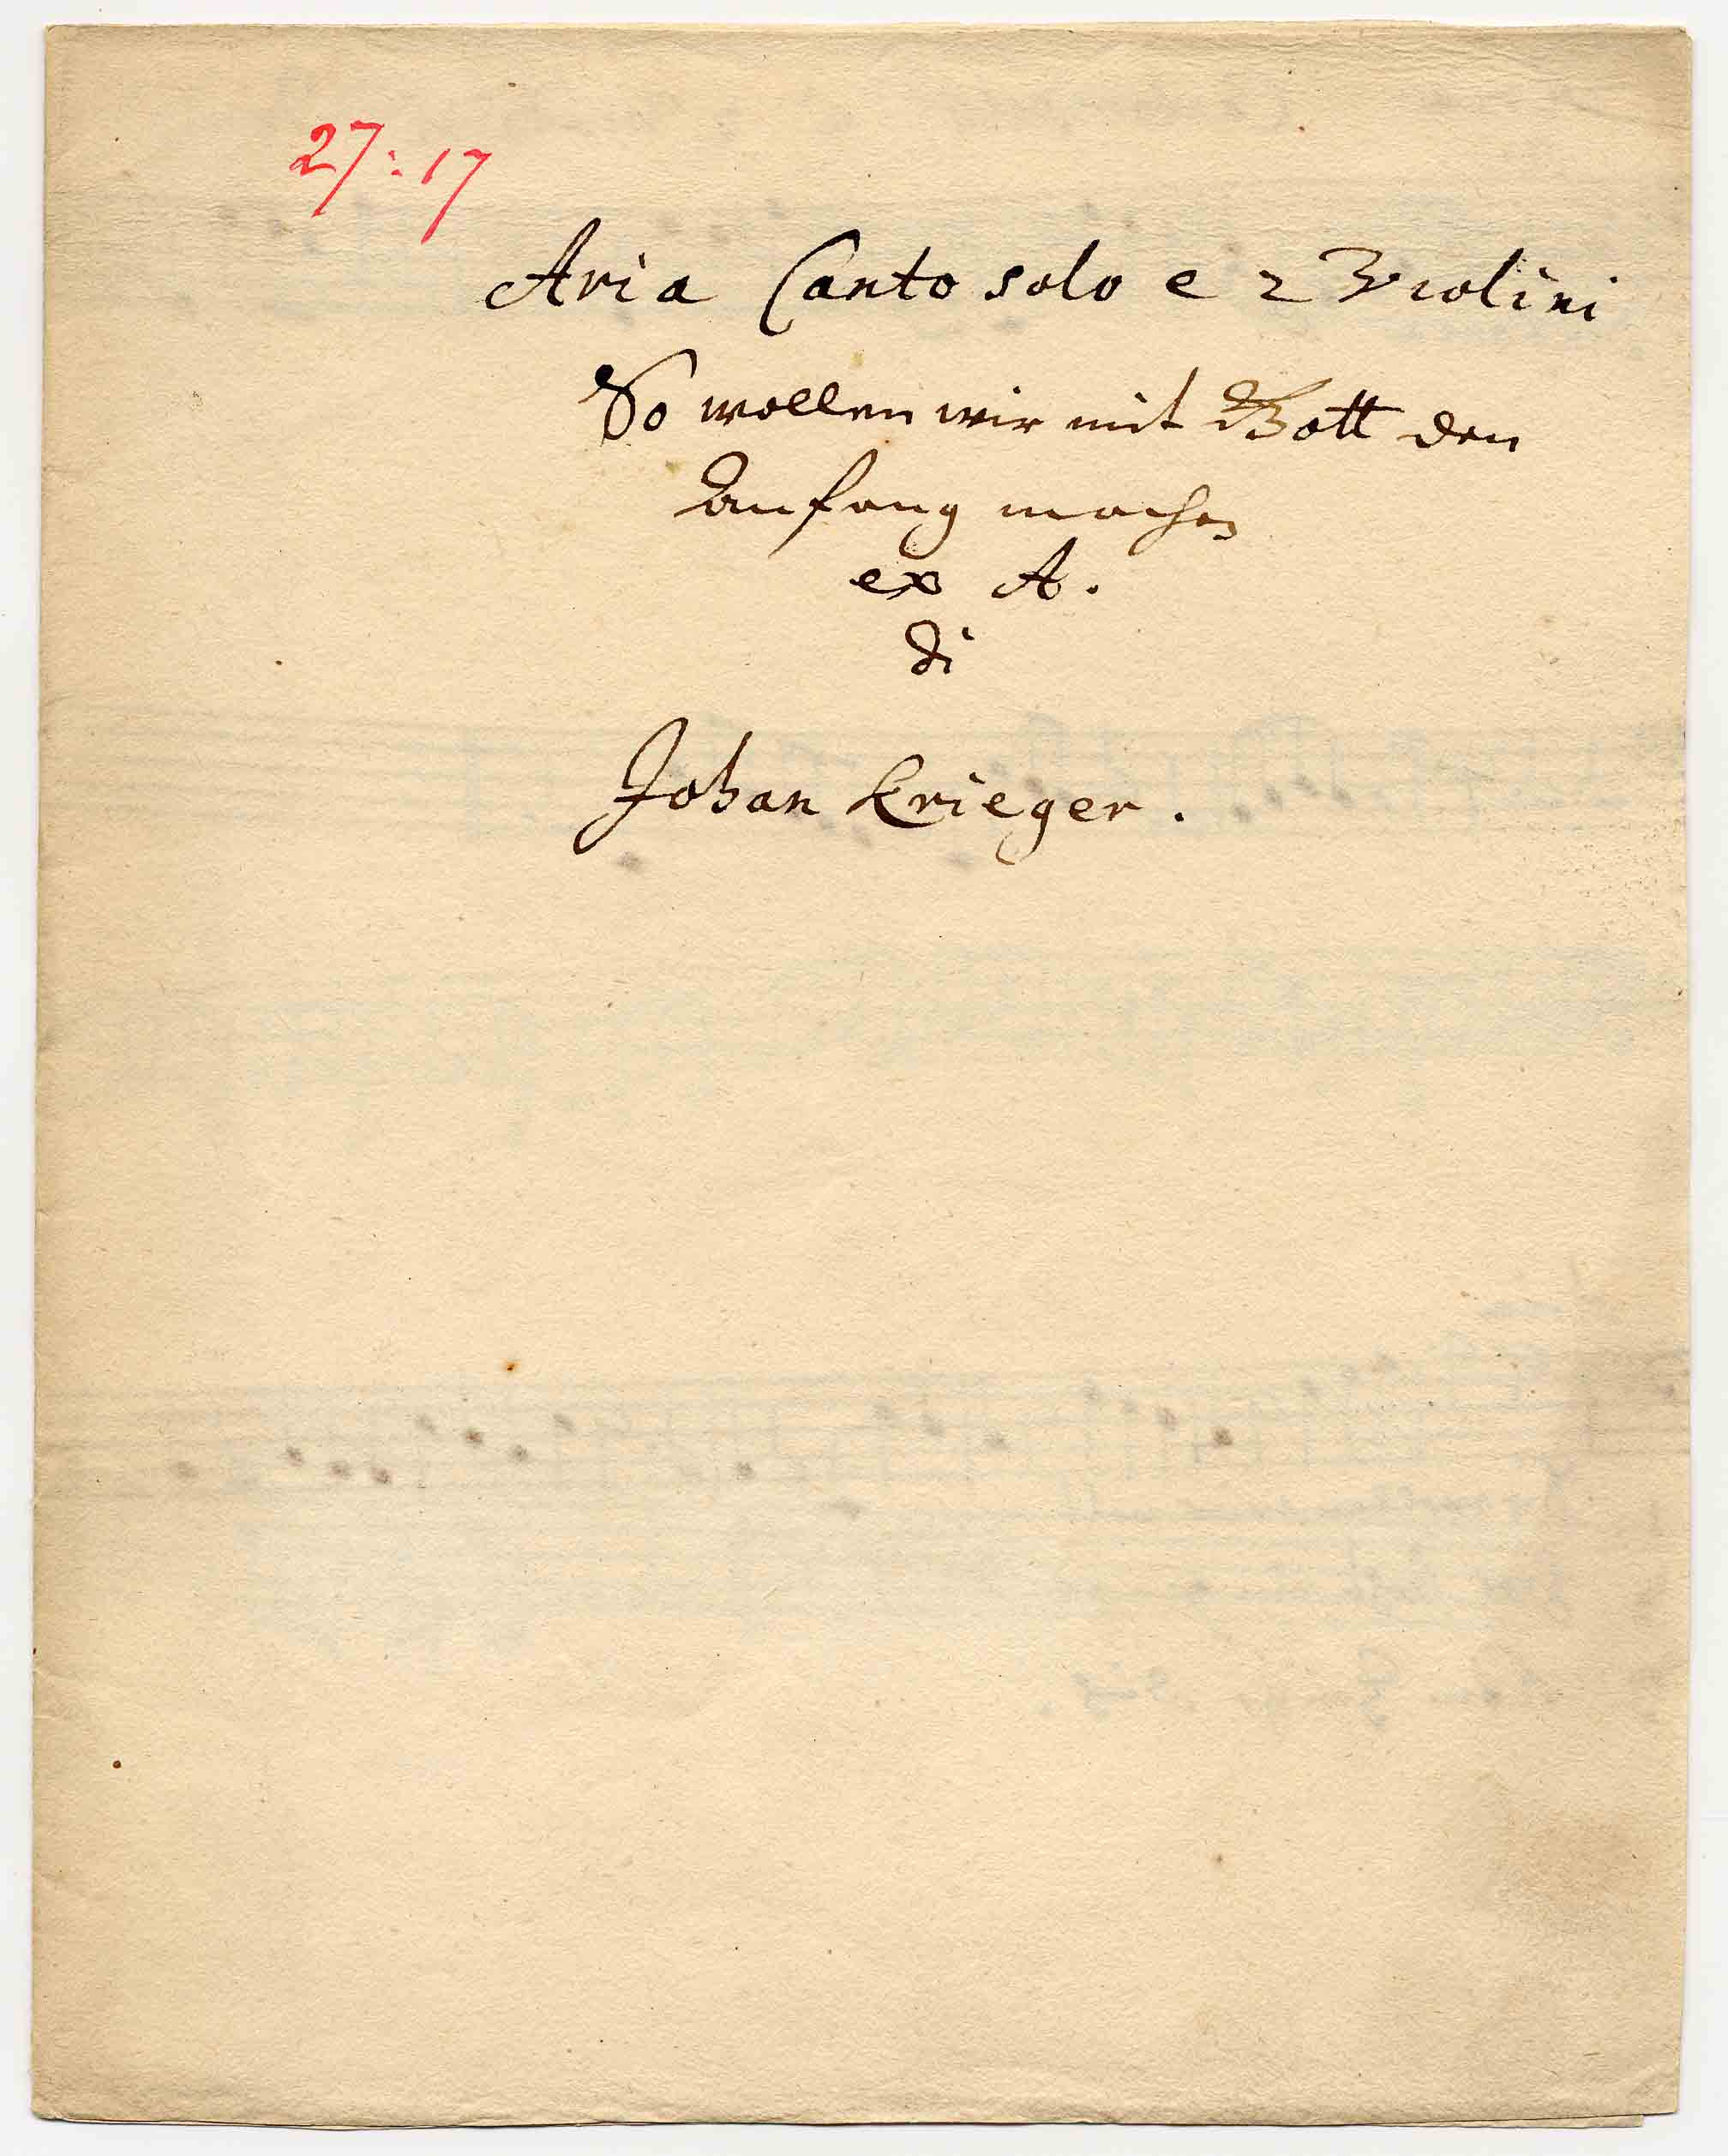 27:17
Aria Canto solo e 2 Violini
So wollen wir mit Gott den
Anfang machen
ex A.
di
Johan Krieger.